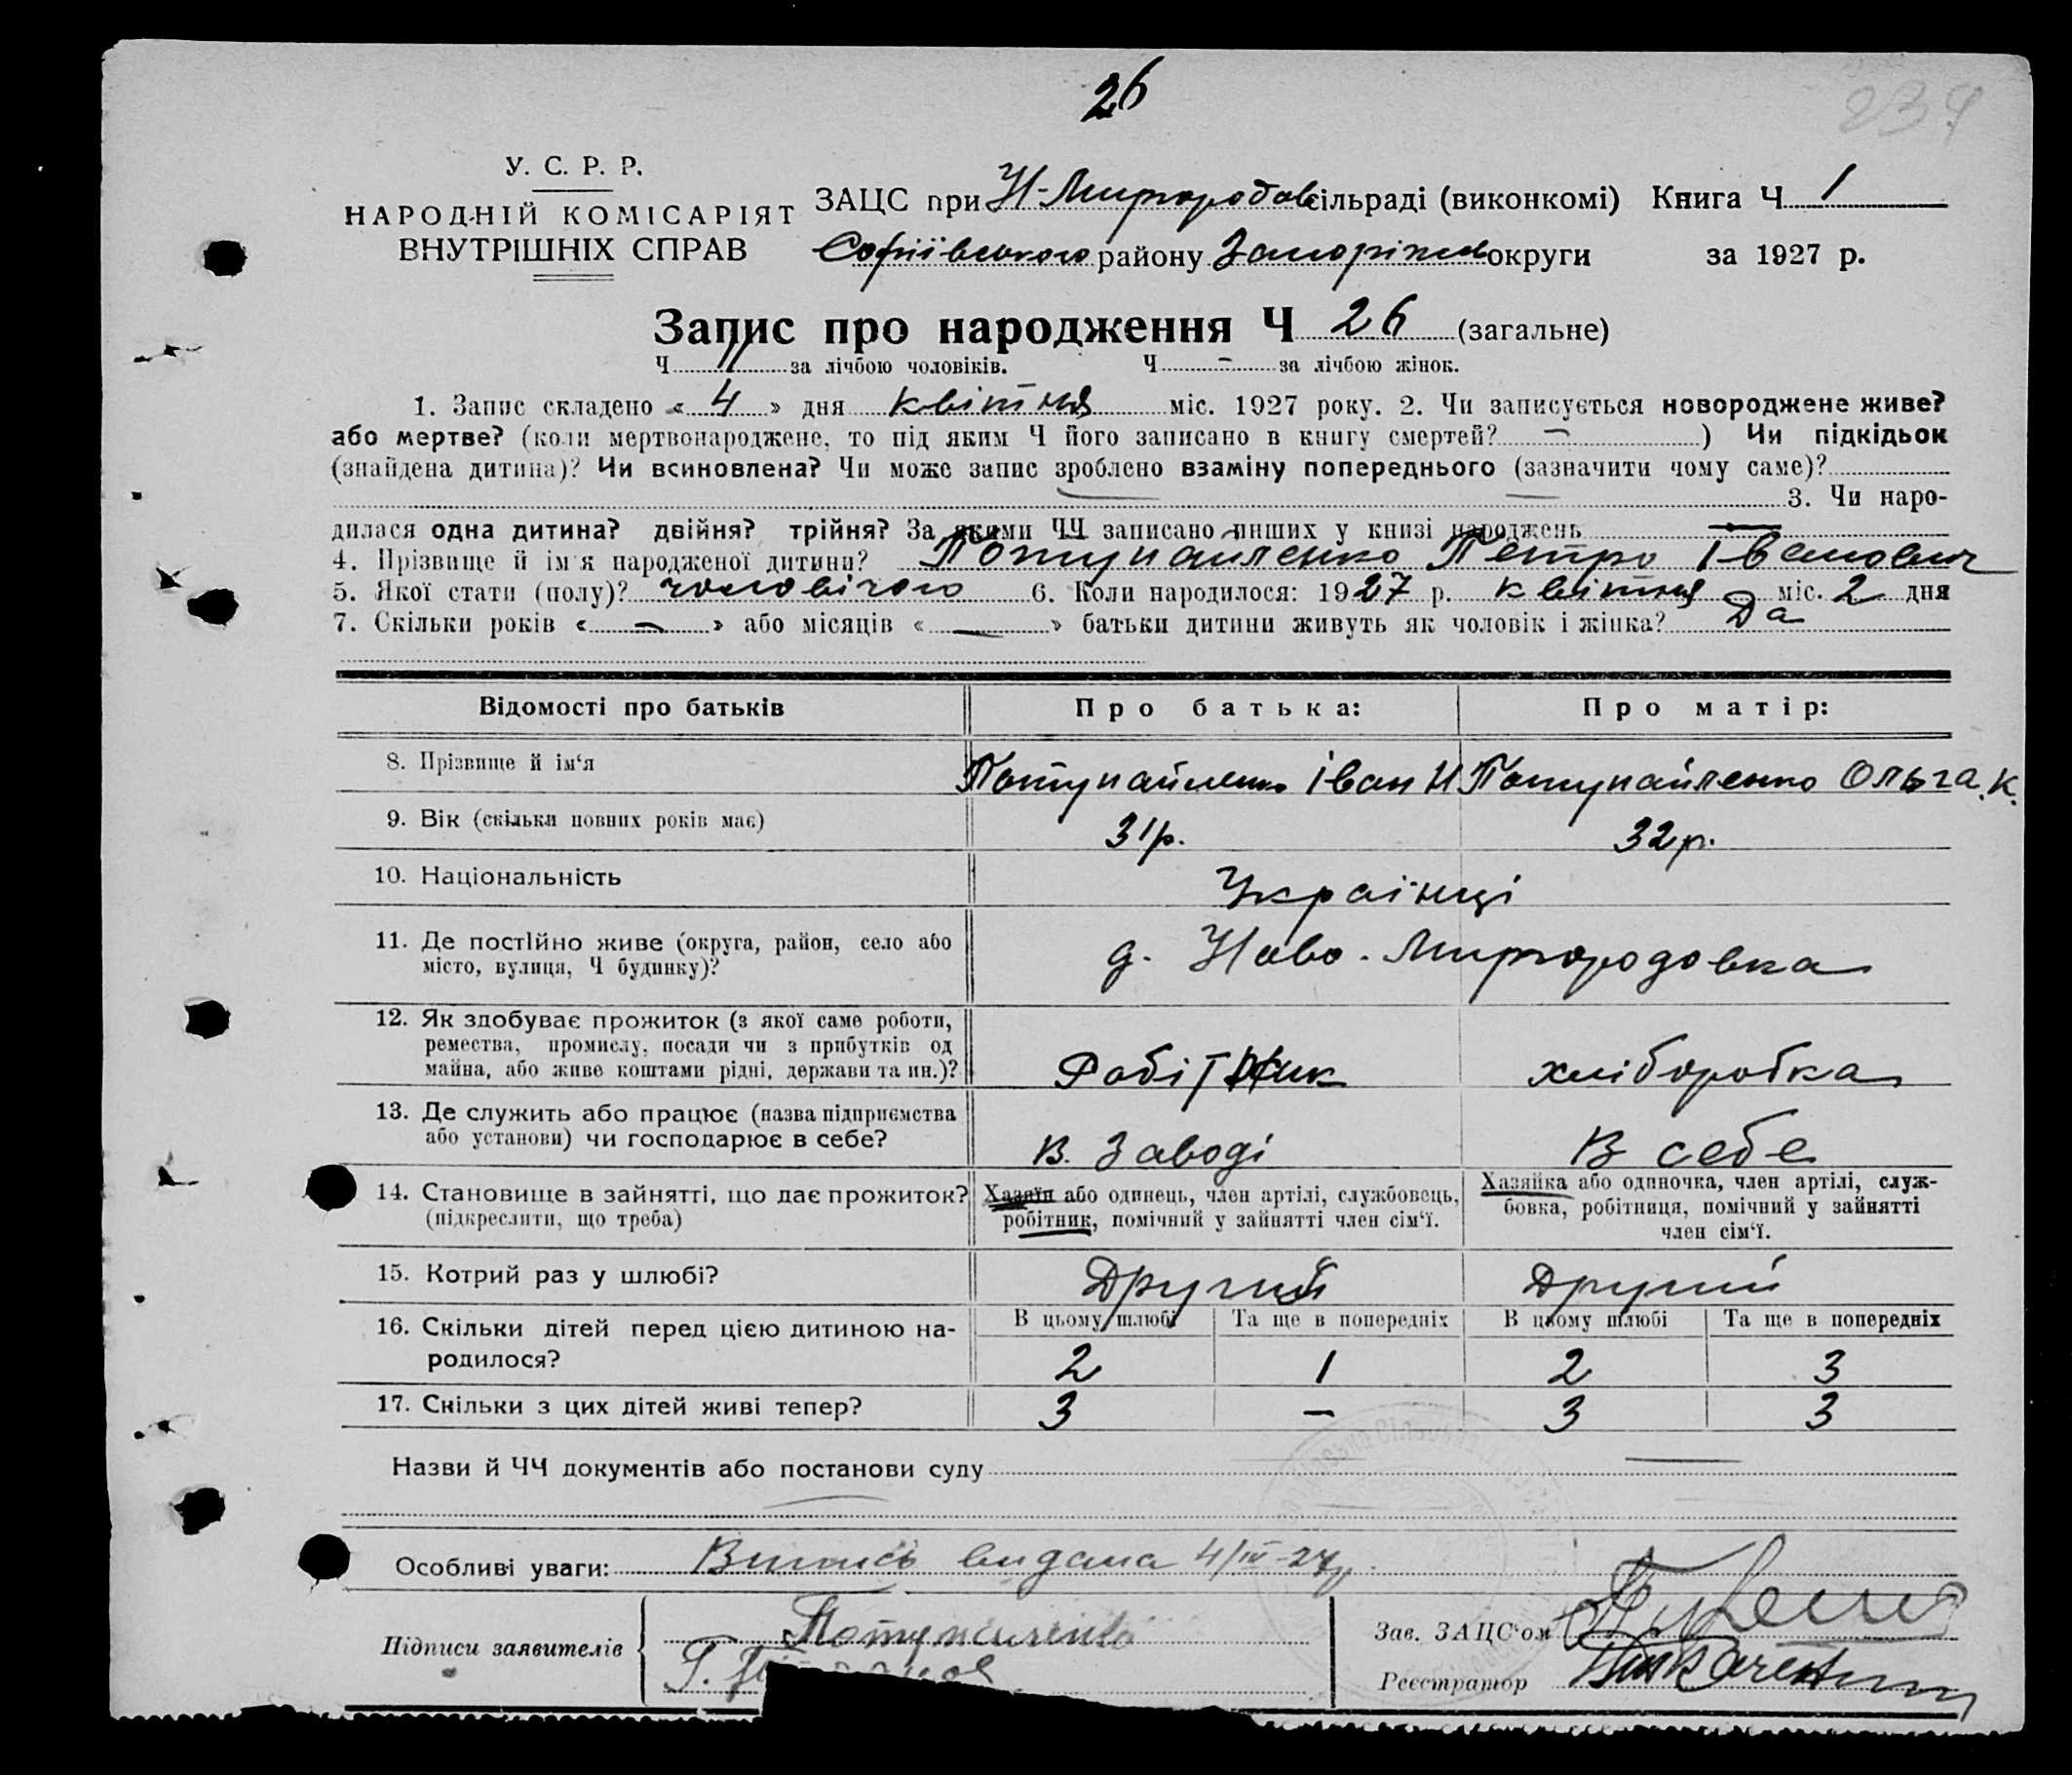 26
239
У. С. Р. Р.
НАРОДНІЙ КОМІСАРІЯТ
ВНУТРІШНІХ СПРАВ
ЗАЦС при Н-Миргородов сільраді (виконкомі) Книга Ч 1
Софіївського району Запоріжськ округи за 1927 р.
Запис про народження Ч 26 (загальне)
Ч 11 за лічбою чоловіків. Ч - за лічбою жінок.
1. Запис складено « 4 » дня квітня міс. 1927 року. 2. Чи записується новороджене живе?
або мертве? (коли мертвонароджене, то під яким Ч його записано в книгу смертей? - ) Чи підкідьок
(знайдена дитина)? Чи всиновлена? Чи може запис зроблено взаміну попереднього (зазначити чому саме)?
3. Чи наро-
дилася одна дитина? двійня? трійня? За якими ЧЧ записано инших у книзі народжень
4. Прізвище й ім'я народженої дитини? Потупайленко Петро Іванович
5. Якої стати (полу)? чоловічого 6. Коли народилося: 1927 р. квітня міс. 2 дня
7. Скільки років « - » або місяців « - » батьки дитини живуть як чоловік і жінка? Да
Відомості про батьків Про батька: Про матір:
8. Прізвище й ім‘я Потупайленко Іван Н Потупайленко Ольга. К.
9. Вік (скільки повних років має) 31р. 32р.
10. Національність Українці
11. Де постійно живе (округа, район, село або
місто, вулиця, Ч будинку)? д. Ново-Миргородовка
12. Як здобуває прожиток (з якої саме роботи,
ремества, промислу, посади чи з прибутків од
майна, або живе коштами рідні, держави та ин.)? Робітник хліборобка
13. Де служить або працює (назва підприємства
або установи) чи господарює в себе? В. Заводі В себе
14. Становище в зайнятті, що дає прожиток?
(підкреслити, що треба)
Хазяїн або одинець, член артілі, службовець,
робітник, помічний у зайнятті член сім‘ї.
Хазяйка або одиночка, член артілі, служ-
бовка, робітниця, помічний у зайнятті
член сім‘ї.
15. Котрий раз у шлюбі? Другий Другий
16. Скільки дітей перед цією дитиною на-
родилося?
В цьому шлюбі Та ще в попередніх В цьому шлюбі Та ще в попередніх
2 1 2 3
17. Скільки з цих дітей живі тепер? 3 - 3 3
Назви й ЧЧ документів або постанови суду
Особливі уваги: Випись видана 4/IV-27р.
Підписи заявителів Потупайленко
Г.
Зав. ЗАЦС‘ом
Реєстратор